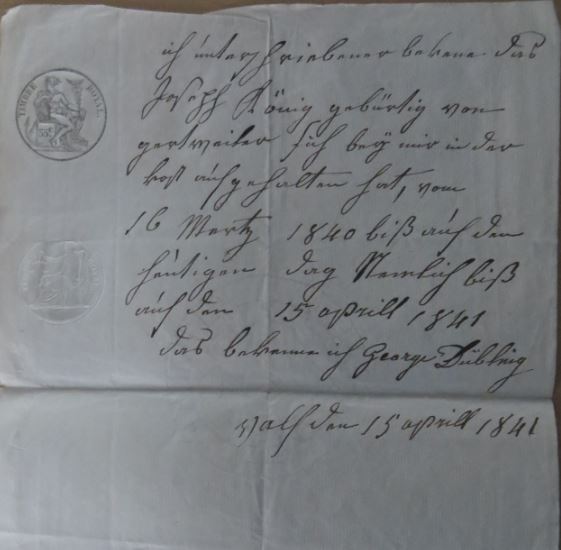 TIMBRE ROYAL
35c
ich unterschriebener bekene das
Joseph König gebürtig von
gertweiler sich bey mir in der
kost aufgehalten hat, vom
16 Mertz 1840 biß auf den
heutigen dag Nemlich biß
auf den 15 aprill 1841
das bekenne ich George
Valf den 15 aprill 1841